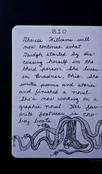 BIO
Theresa Williams will
now continue what
Taidgh started by dis-
cussing herself in the
third person. She lives
in Bradner, Ohio. She
writes poems and stories
and finished a novel.
She's now working on a
graphic novel. Her fav-
orite features is com-